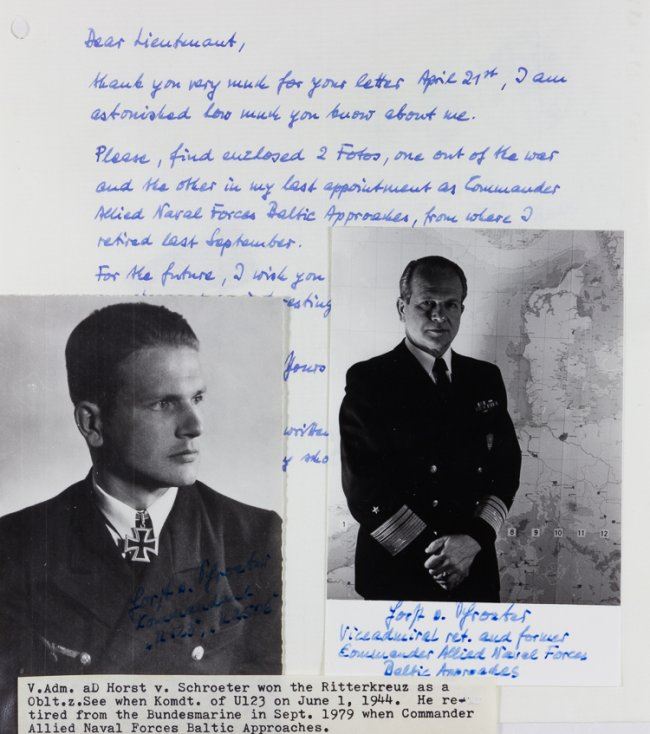 Dear Lieutenant,
thank you very much for your letter April 21st, I am
astonished how much you know about me.
Please, find enclosed 2 Fotos, one out of the war
and the other in my last appointment as Commander
Allied Naval Forces Baltic Approaches, from where I
retired last September.
For the future, I wish you
Yours
written
1
8 9 10 11 12
Horst v. Schroeter
Commandant
Horst v. Schroeter
Viceadmiral ret. and former
Commander Allied Naval Forces
Baltic Approaches
V.Adm. aD Horst v. Schroeter won the Ritterkreuz as a
Oblt.z.See when Komdt. of U123 on June 1, 1944. He re-
tired from the Bundesmarine in Sept. 1979 when Commander
Allied Naval Forces Baltic Approaches.